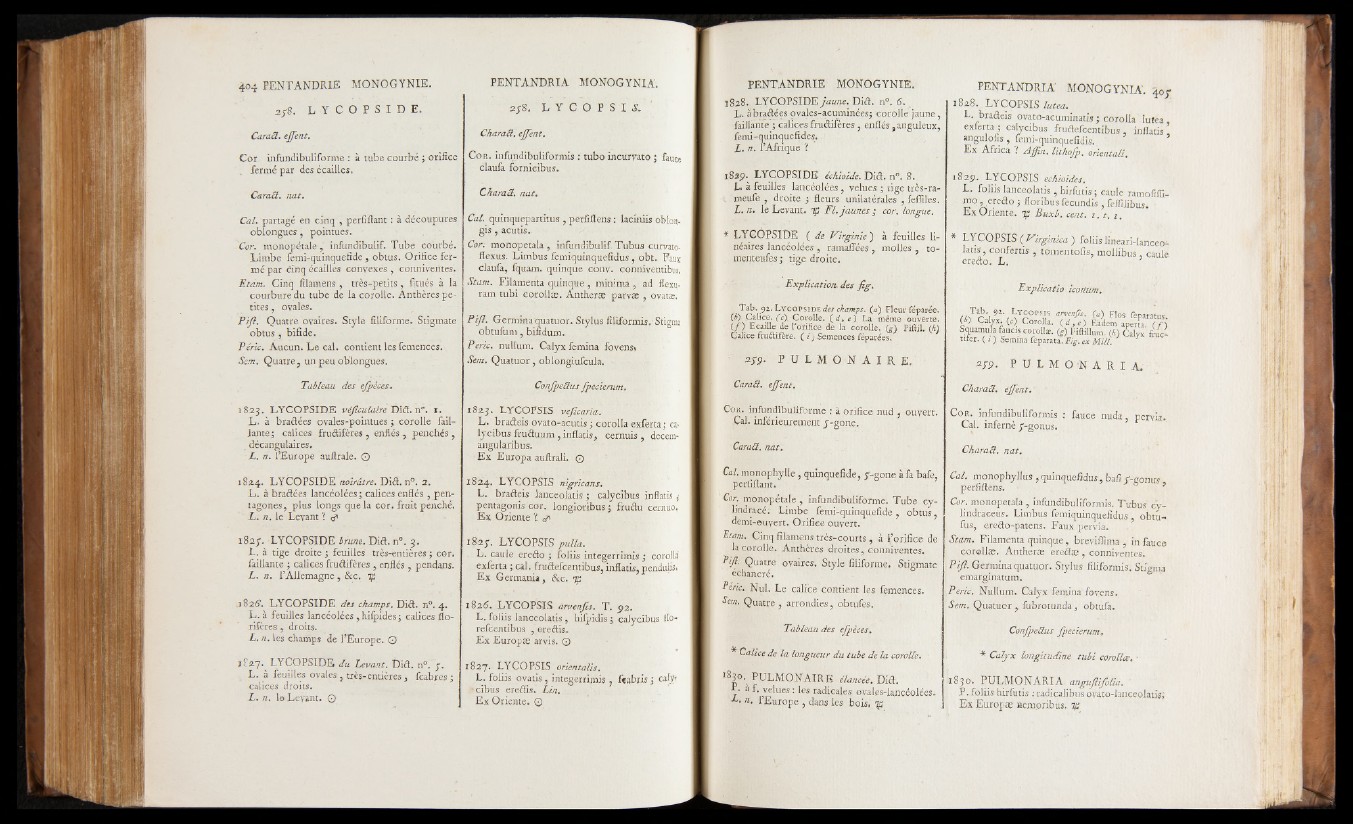 404 PENTANDRIE MONOGYNIE.
258. LYCOPSIDE.
Caract. essent.
Cor. infundibuliforme : à tube courbé ; orifice
fermé par des écailles.
Caract. nat.
Cal. partagé en cinq , persistant : à découpures
oblongues , pointues.
Cor. monopétale , infundibulif. Tube courbé.
Limbe semi-quinquefide , obtus. Orifice fer-
mé par cinq écailles convexes , conniventes.
Etam. Cinq filamens , très-petits, situés à la
courbure du tube de la corolle. Anthères pe-
tites , ovales.
Pist. Quatre ovaires. Style filiforme. Stigmate
obtus , bifide.
Péric. Aucun. Le cal. contient les semences.
Sem. Quatre, un peu oblongues.
Tableau des espèces.
1823. LYCOPSIDE vésiculaire Dict. n°. 1.
L. à bractées ovales-pointues ; corolle sail-
lante ; calices fructifères , enflés , penchés ,
décangulaires.
L. n. l'Europe australe. ☉
1824. LYCOPSIDE noirâtre. Dict. n°. 2.
L. à bractées lancéolées ; calices enflés , pen-
tagones, plus longs que la cor. fruit penché.
L. n. le Levant ? ♂
1825. LYCOPSIDE brune. Dict. n°. 3.
L. à tige droite ; feuilles très-entières ; cor.
saillante ; calices fructifères , enflés , pendans.
L. n. l'Allemagne , &c. ♃
1826. LYCOPSIDE des champs. Dict. n°. 4.
L. à feuilles lancéolées , hispides ; calices flo-
rifères , droits.
L. n. les champs de l'Europe. ☉
1827. LYCOPSIDE du Levant. Dict. n°. 5.
L. à feuilles ovales , très-entières , scabres ;
calices droits.
L. n. le Levant. ☉
PENTANDRIA MONOGYNIA.
258. LYCOPSIS.
Charact. essent.
Cor. infundibuliformis : tubo incurvato ; fauce
clausa fornicibus.
Charact. nat.
Cal. quinquepartitus , persistens : laciniis oblon-
gis , acutis.
Cor. monopetala , infundibulif. Tubus curvato-
flexus. Limbus semiquinquefidus , obt. Faux
clausa, squam. quinque conv. conniventibus.
Stam. Filamenta quinque , minima , ad flexu-
ram tubi corollæ. Antheræ parvæ , ovatæ.
Pist. Germina quatuor. Stylus filiformis. Stigma
obtusum , bifidum.
Peric. nullum. Calyx semina fovens.
Sem. Quatuor , oblongiuscula.
Conspectus specierum.
1823. LYCOPSIS vesicaria.
L. bracteis ovato-acutis ; corolla exserta ; ca-
lycibus fructuum , inflatis, cernuis , decem-
angularibus.
Ex Europa australi. ☉
1824. LYCOPSIS nigricans.
L. bracteis lanceolatis ; calycibus inflatis ,
pentagonis cor. longioribus ; fructu cernuo.
Ex Oriente ? ♂
1825. LYCOPSIS pulla.
L. caule erecto ; foliis integerrimis ; corolla
exserta ; cal. fructescentibus, inflatis, pendulis.
Ex Germania, &c. ♃
1826. LYCOPSIS arvensis. T. 92.
L. foliis lanceolatis , hispidis ; calycibus flo-
rescentibus , erectis.
Ex Europæ arvis. ☉
1827. LYCOPSIS orientalis.
L. foliis ovatis , integerrimis , scabris ; caly-
cibus erectis. Lin.
Ex Oriente. ☉
PENTANDRIE MONOGYNIE.
1828. LYCOPSIDE jaune. Dict. n°. 6.
L. à bractées ovales-acuminées ; corolle jaune,
saillante ; calices fructifères , enflés , anguleux,
semi-quinquefides.
L. n. l'Afrique ?
1829. LYCOPSIDE échioide. Dict. n°. 8.
L. à feuilles lancéolées , velues ; tige très-ra-
meuse , droite ; fleurs unilatérales , sessiles.
L. n. le Levant. ♃ Fl. jaunes ; cor. longue.
* LYCOPSIDE ( de Virginie ) à feuilles li-
néaires lancéolées , ramassées , molles , to-
menteuses ; tige droite.
Explication des fig.
Tab. 92. LYCOPSIDE des champs. (a) Fleur séparée.
(b) Calice. (c) Corolle. (d, e) La même ouverte.
(f) Ecaille de l'orifice de la corolle. (g) Pistil. (h)
Calice fructifère. (i) Semences séparées.
259. PULMONAIRE.
Caract. essent.
Cor. infundibuliforme : à orifice nud , ouvert.
Cal. inférieurement 5-gone.
Caract. nat.
Cal. monophylle , quinquefide, 5-gone à sa base,
persistant.
Cor. monopétale , infundibuliforme. Tube cy-
lindracé. Limbe semi-quinquefide , obtus,
demi-ouvert. Orifice ouvert.
Etam. Cinq filamens très-courts , à l'orifice de
la corolle. Anthères droites, conniventes.
Pist. Quatre ovaires. Style filiforme. Stigmate
échancré.
Péric. Nul. Le calice contient les semences.
Sem. Quatre , arrondies, obtuses.
Tableau des espèces.
* Calice de la longueur du tube de la corolle.
1830. PULMONAIRE élancée. Dict.
P. à f. velues : les radicales ovales-lancéolées.
L. n. l'Europe , dans les bois. ♃
PENTANDRIA MONOGYNIA. 405
1828. LYCOPSIS lutea.
L. bracteis ovato-acuminatis ; corolla lutea ,
exserta ; calycibus fructescentibus , inflatis ,
angulosis , semi-quinquefidis.
Ex Africa ? Affin. lithosp. orientali.
1829. LYCOPSIS echioides.
L. foliis lanceolatis , hirsutis ; caule ramosissi-
mo , erecto ; floribus secundis , sessilibus.
Ex Oriente. ♃ Buxb. cent. 1. t. 1.
* LYCOPSIS ( Virginica ) foliis lineari-lanceo-
latis , confertis , tomentosis, mollibus , caule
erecto. L.
Explicatio iconum.
Tab. 92. LYCOPSIS arvensis. (a) Flos separatus.
(b) Calyx. (c) Corolla. (d, e) Eadem aperta. (f)
Squamula faucis corollæ. (g) Pistillum. (h) Calyx fruc-
tifer. (i) Semina separata. Fig. ex Mill.
259. PULMONARIA.
Charact. essent.
Cor. infundibuliformis : fauce nuda , pervia.
Cal. infernè 5-gonus.
Charact. nat.
Cal. monophyllus , quinquefidus, basi 5-gonus ,
persistens.
Cor. monopetala , infundibuliformis. Tubus cy-
lindraceus. Limbus semiquinquefidus , obtu-
sus, erecto-patens. Faux pervia.
Stam. Filamenta quinque , brevissima , in fauce
corollæ. Antheræ erectæ , conniventes.
Pist. Germina quatuor. Stylus filiformis. Stigma
emarginatum.
Peric. Nullum. Calyx semina fovens.
Sem. Quatuor , subrotunda , obtusa.
Conspectus specierum.
* Calyx longitudine tubi corollæ.
1830. PULMONARIA angustifolia.
P. foliis hirsutis : radicalibus ovato-lanceolatis.
Ex Europæ nemoribus. ♃